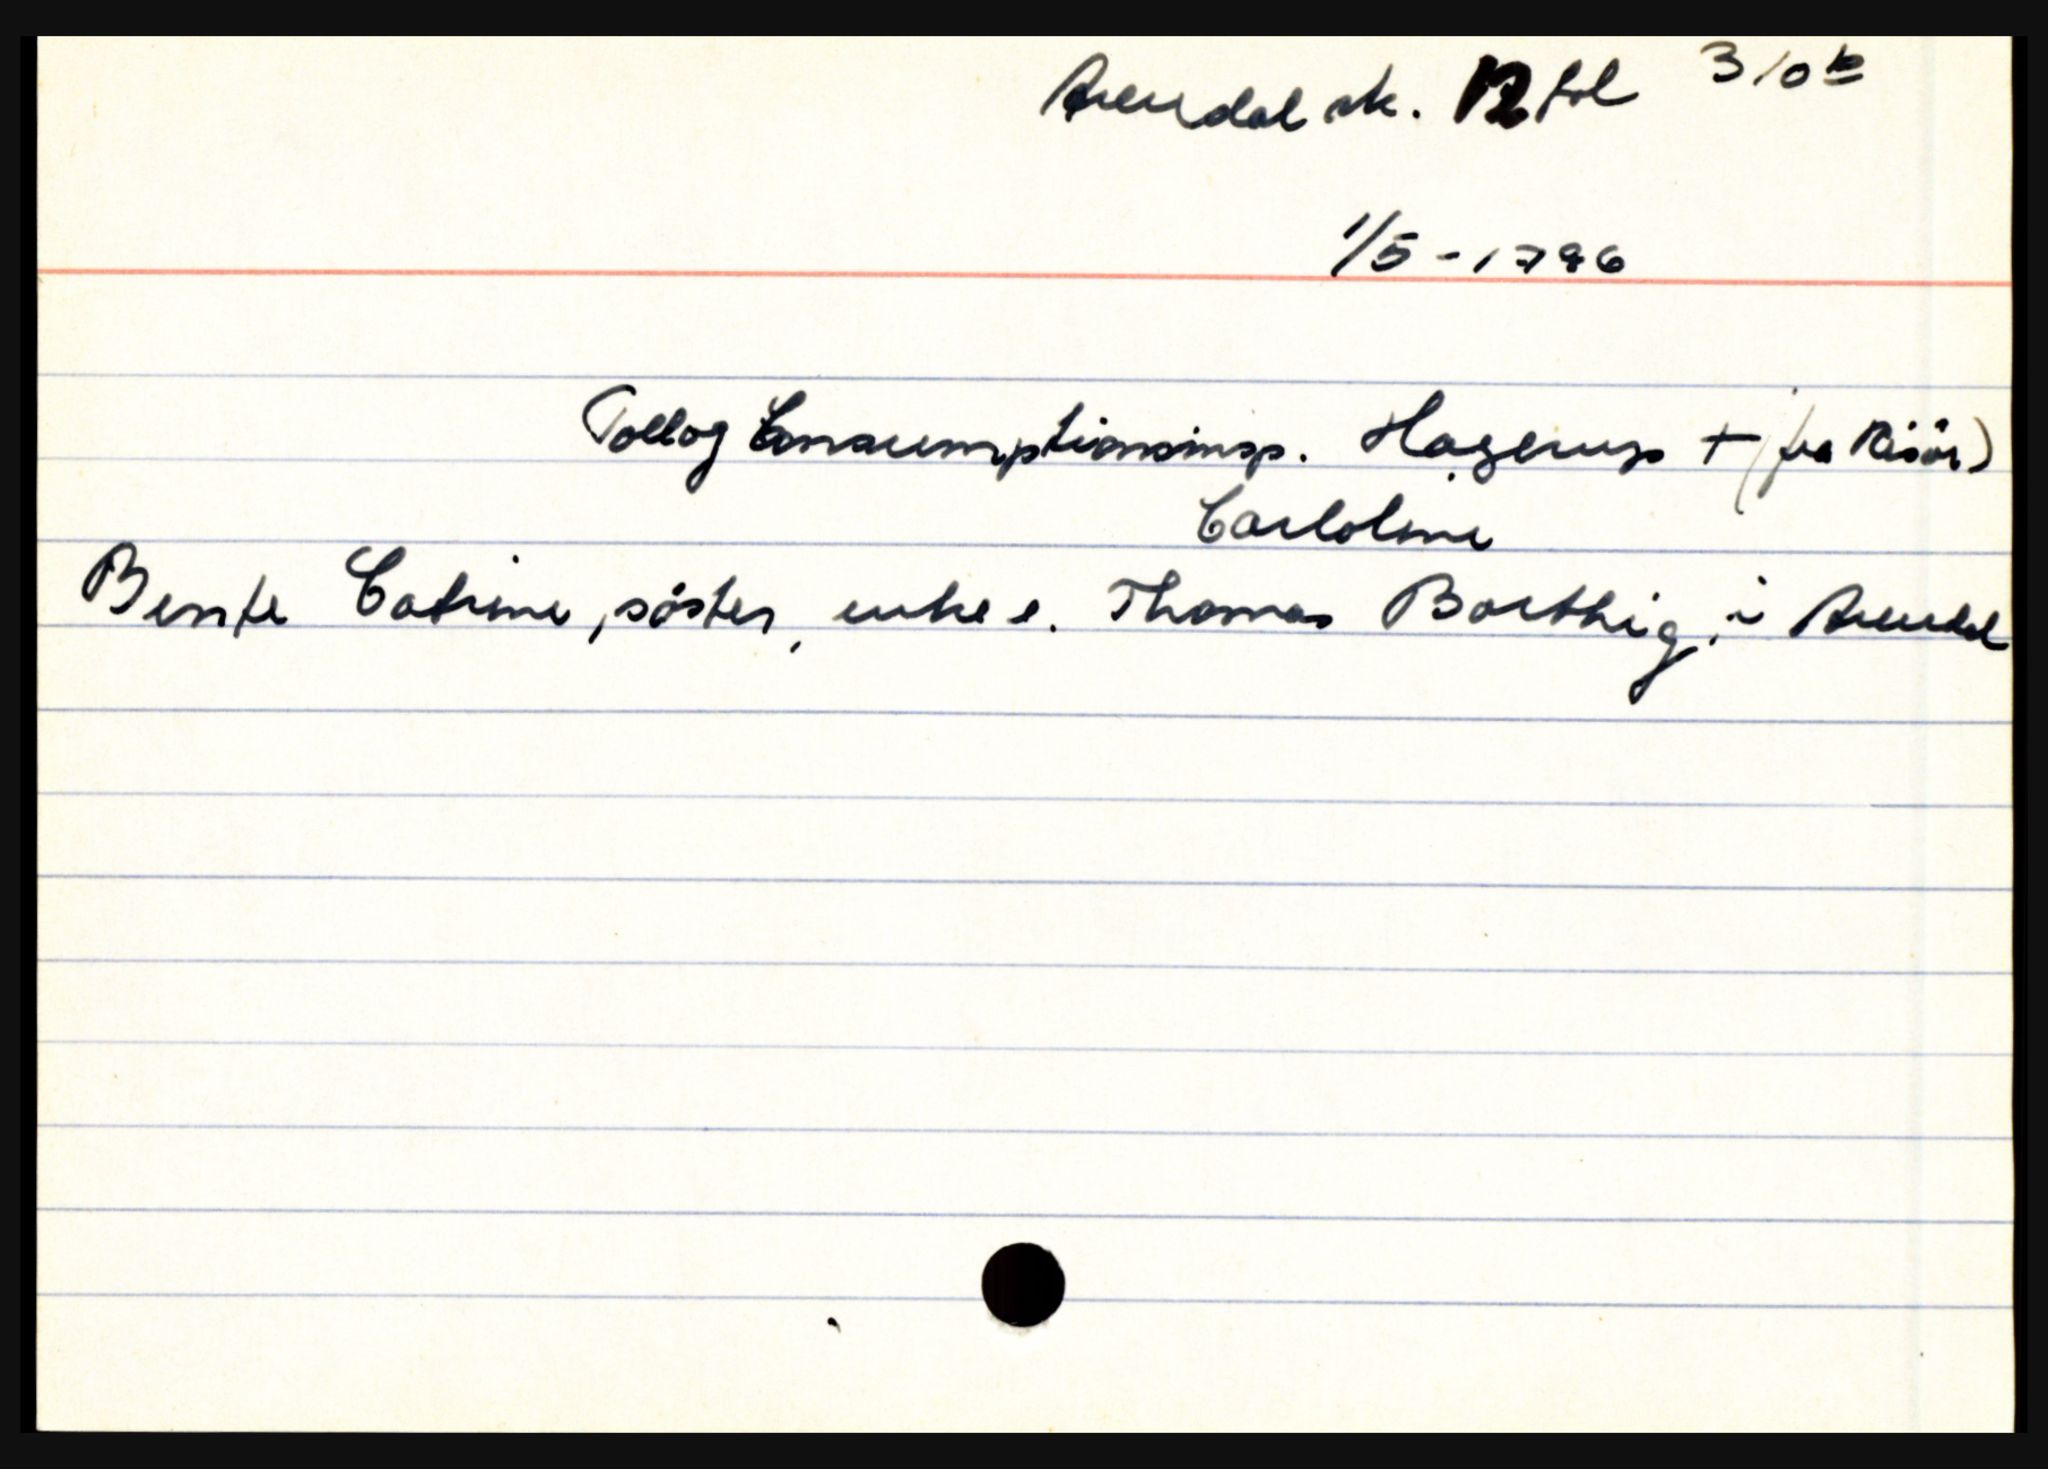 Arendal sk. 12 fol 310 b
1/5 - 1796
Toll og Consumptionsinsp. Hagerup + (fra Risör)
Carloline
Bente Catrine, søster, enke e. Thomas Barthig, i Arendal